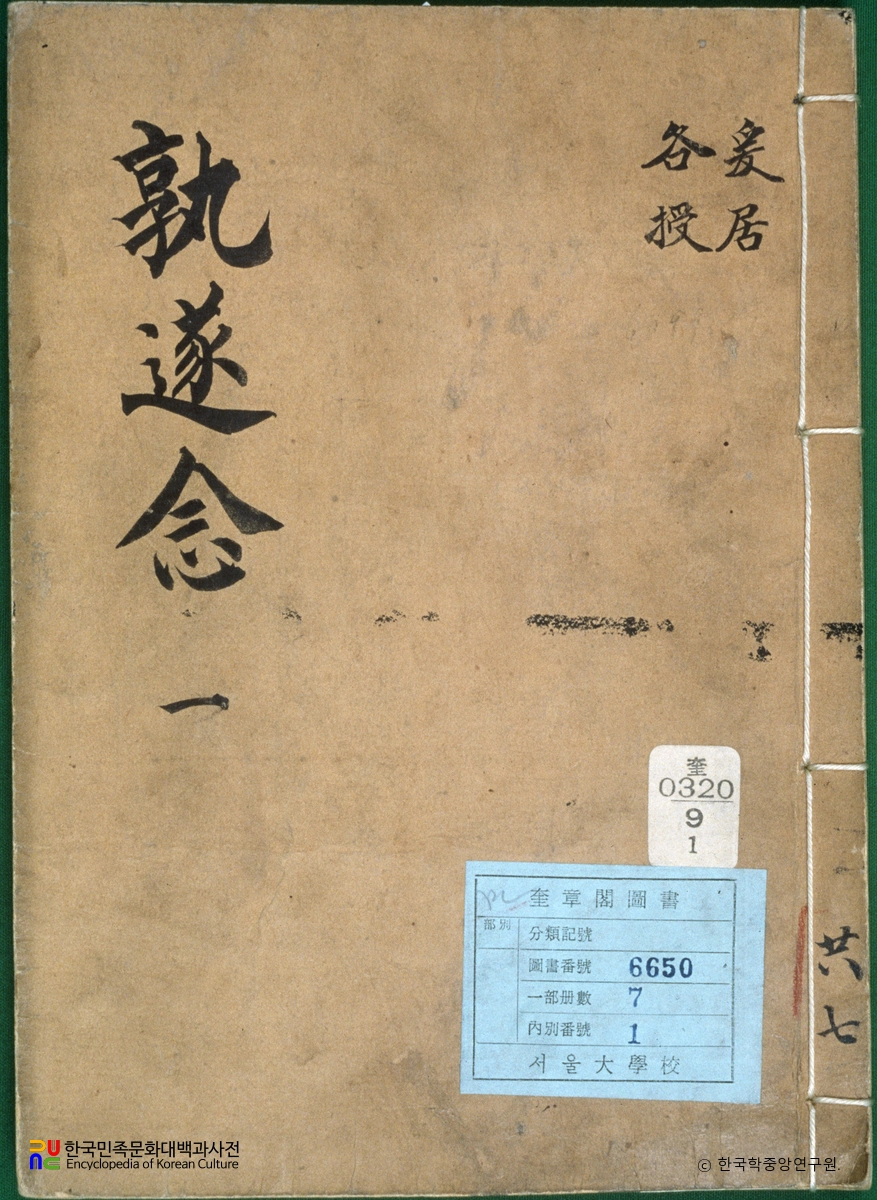 爰居
各授
孰遂念
一
奎
0320
9
1
奎章閣圖書
部別
分類記號
圖書番號 6650
一部册數 7
內別番號 1
서울大學校
共七
한국민족문화대백과사전
Encyclopedia of Korean Culture
© 한국학중앙연구원.